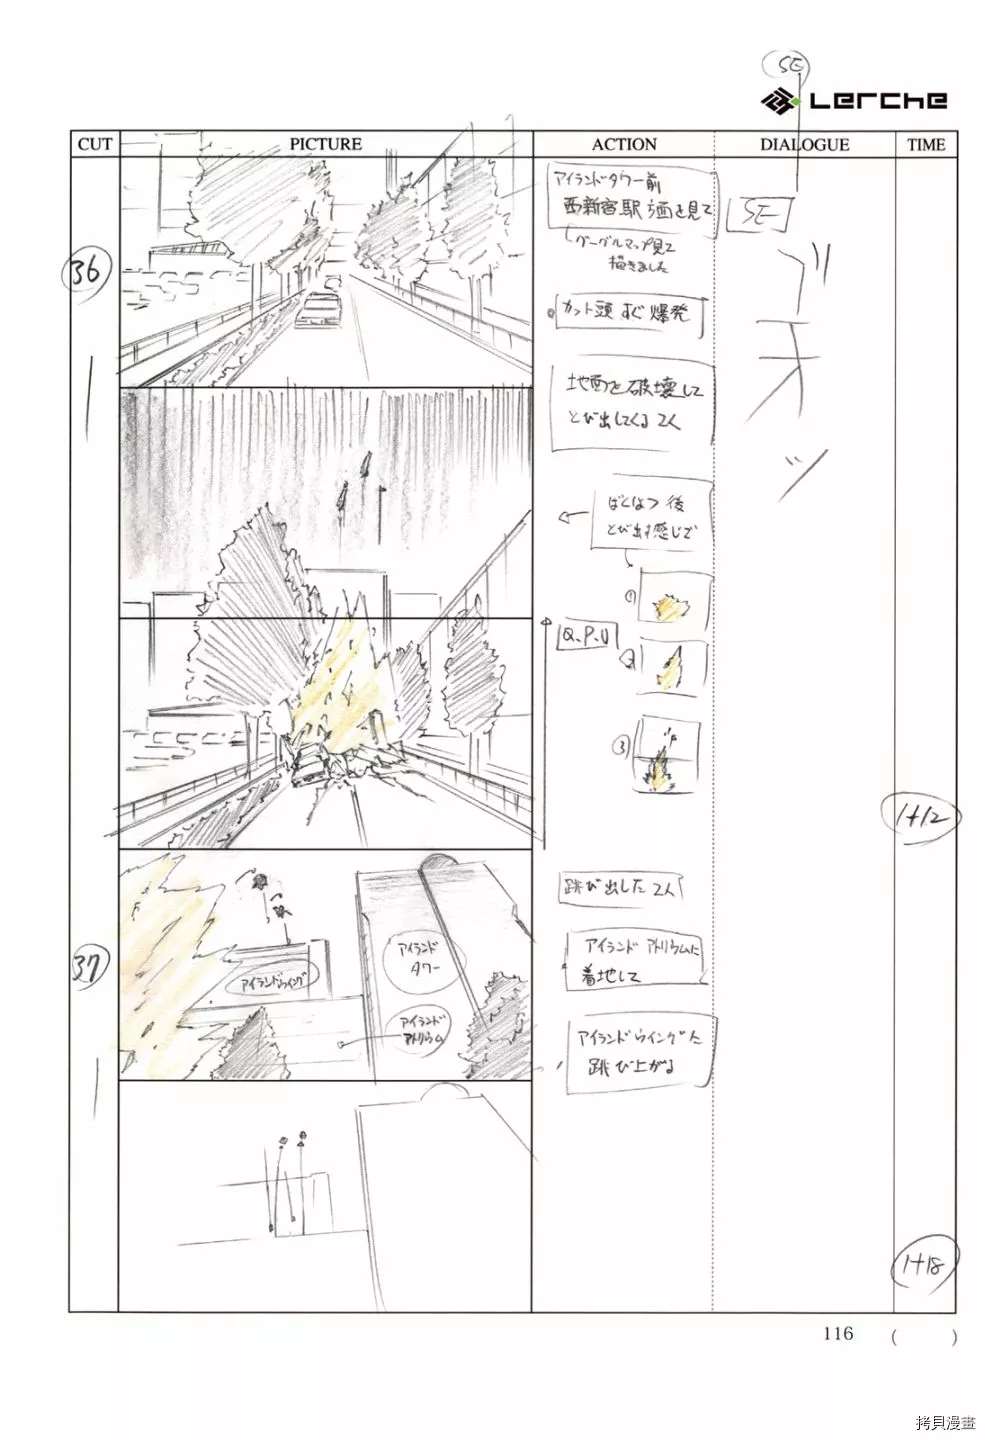 SE
Lerche
CUT
PICTURE
ACTION
DIALOGUE
TIME
36
アイランドタワー前
西新宿駅方面を見て
グーグルマップ見て
描きました
カット頭 すぐ爆発
地面を破壊して
とび出してくる2人
ばくはつ後
とび出す感じで
①
Q.P.U
②
③
SE
ドオッ
1+12
37
アイランドウイング
アイランド
タワー
アイランド
アトリウム
跳び出した2人
アイランドアトリウムに
着地して
アイランドウイングへ
跳び上がる
1+18
116
(   )
拷貝漫畫